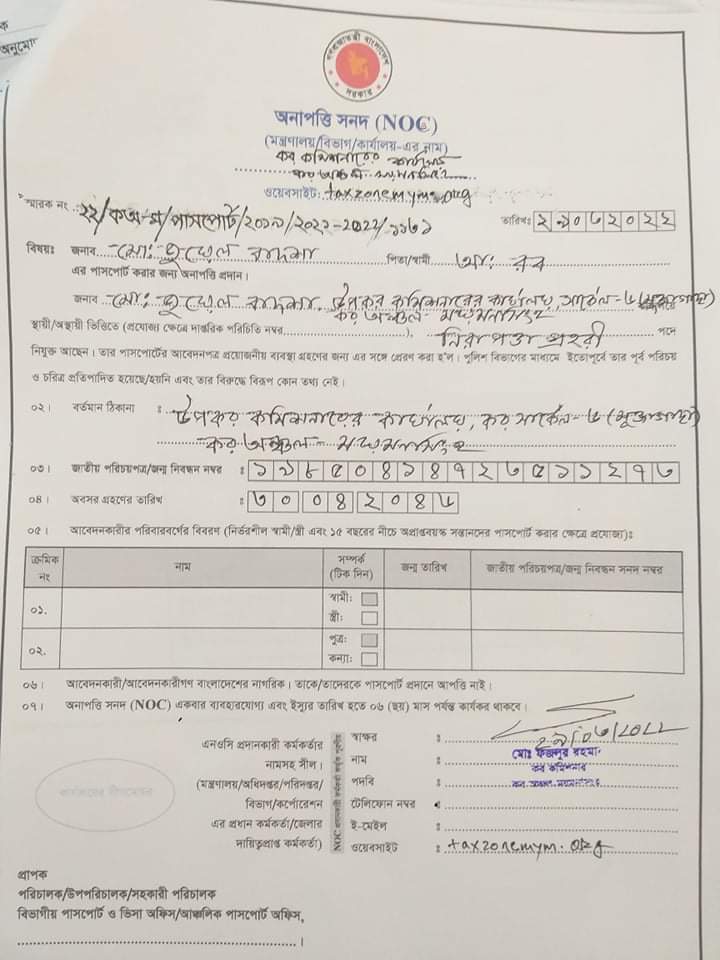 ক
অনুমো
গণপ্রজাতন্ত্রী বাংলাদেশ
সরকার
অনাপত্তি সনদ (NOC)
(মন্ত্রণালয়/বিভাগ/কার্যালয়-এর নাম)
কর কমিশনারের কার্যালয়
কর অঞ্চল
ওয়েবসাইট: taxzonemym.org
স্মারক নং ২২/ক অ-ম/পাসপোর্ট/২০১৯/২০২১-২০২২/১১৬১ তারিখঃ ২৯০৬২০২২
বিষয়ঃ জনাব মোঃ পিতা/স্বামী আঃ রব
এর পাসপোর্ট করার জন্য অনাপত্তি প্রদান।
জনাব মোঃ উপকর কমিশনারের কার্যালয়, সার্কেল-৬ (মুক্তাগাছা)
কর অঞ্চল- ময়মনসিংহ
স্থায়ী/অস্থায়ী ভিত্তিতে (প্রযোজ্য ক্ষেত্রে দাপ্তরিক পরিচিতি নম্বর), নিরাপত্তা প্রহরী পদে
নিযুক্ত আছেন। তার পাসপোর্টের আবেদনপত্র প্রয়োজনীয় ব্যবস্থা গ্রহণের জন্য এর সঙ্গে প্রেরণ করা হ'ল। পুলিশ বিভাগের মাধ্যমে ইতোপূর্বে তার পূর্ব পরিচয়
ও চরিত্র প্রতিপাদিত হয়েছে/হয়নি এবং তার বিরুদ্ধে বিরূপ কোন তথ্য নেই।
০২। বর্তমান ঠিকানা : উপকর কমিশনারের কার্যালয়, কর সার্কেল-৬ (মুক্তাগাছা)
কর অঞ্চল- ময়মনসিংহ
০৩। জাতীয় পরিচয়পত্র/জন্ম নিবন্ধন নম্বর : ১৯৮৫০৪১৪৭২৬৫১১২৭৬
০৪। অবসর গ্রহণের তারিখ : ৩০০৪২০৪৫
০৫। আবেদনকারীর পরিবারবর্গের বিবরণ (নির্ভরশীল স্বামী/স্ত্রী এবং ১৫ বছরের নীচে অপ্রাপ্তবয়স্ক সন্তানদের পাসপোর্ট করার ক্ষেত্রে প্রযোজ্য)ঃ
ক্রমিক নং নাম সম্পর্ক (টিক দিন) জন্ম তারিখ জাতীয় পরিচয়পত্র/জন্ম নিবন্ধন সনদ নম্বর
০১. স্বামী:
স্ত্রী:
০২. পুত্র:
কন্যা:
০৬। আবেদনকারী/আবেদনকারীগণ বাংলাদেশের নাগরিক। তাকে/তাদেরকে পাসপোর্ট প্রদানে আপত্তি নাই।
০৭। অনাপত্তি সনদ (NOC) একবার ব্যবহারযোগ্য এবং ইস্যুর তারিখ হতে ০৬ (ছয়) মাস পর্যন্ত কার্যকর থাকবে।
এনওসি প্রদানকারী কর্মকর্তার স্বাক্ষর : ২৯/০৬/২০২২
নামসহ সীল। নাম : মোঃ ফজলুর রহমান
(মন্ত্রণালয়/অধিদপ্তর/পরিদপ্তর/ পদবি : কর কমিশনার
কর অঞ্চল, ময়মনসিংহ
বিভাগ/কর্পোরেশন টেলিফোন নম্বর :
এর প্রধান কর্মকর্তা/জেলার ই-মেইল :
দায়িত্বপ্রাপ্ত কর্মকর্তা) ওয়েবসাইট : taxzonemym.org
প্রাপক
পরিচালক/উপপরিচালক/সহকারী পরিচালক
বিভাগীয় পাসপোর্ট ও ভিসা অফিস/আঞ্চলিক পাসপোর্ট অফিস,
।